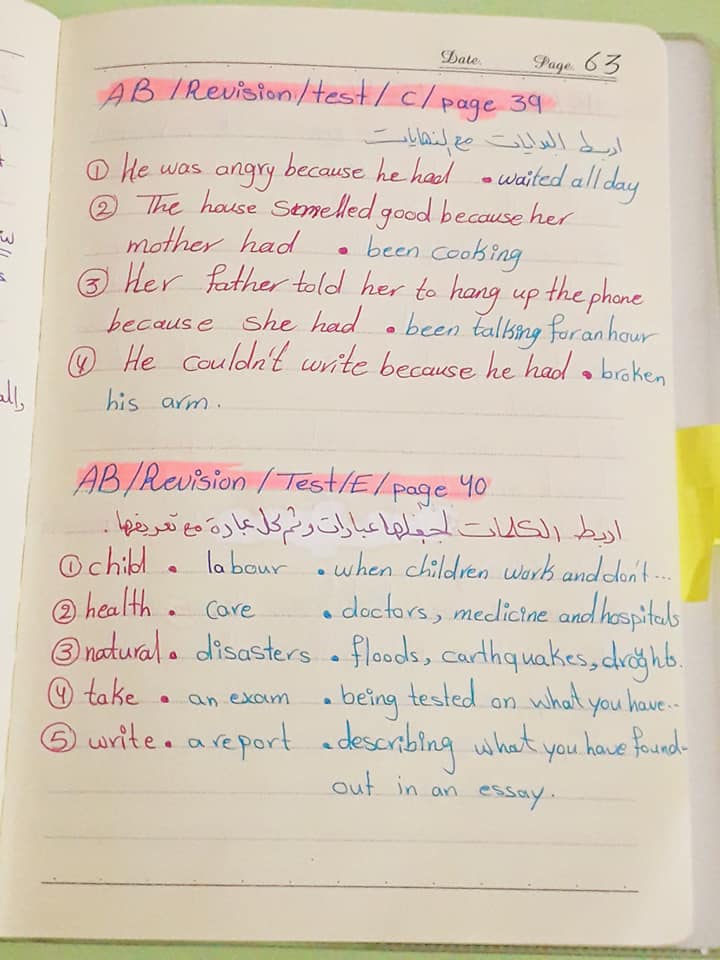 Date. Page. 63
AB / Revision / test / C / page 39
اربط البدايات مع النهايات
① He was angry because he had • waited all day
② The house smelled good because her
mother had • been cooking
③ Her father told her to hang up the phone
because she had • been talking for an hour
④ He couldn't write because he had • broken
his arm.
AB / Revision / Test / E / page 40
اربط الكلمات لجعلها عبارات وثم كل عبارة مع تعريفها.
① child • labour • when children work and don't...
② health • care • doctors, medicine and hospitals
③ natural • disasters • floods, earthquakes,
④ take • an exam • being tested on what you have..
⑤ write • a report • describing what you have found-
out in an essay.